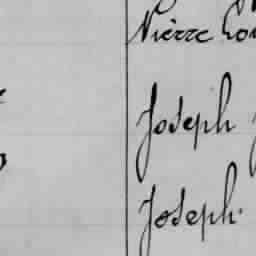 Pierre Lou
Joseph J
Joseph